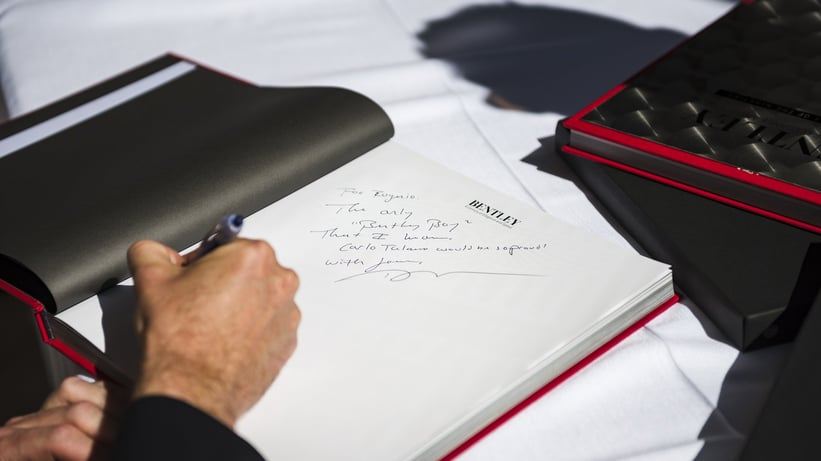 For Rogerio.
BENTLEY
The only
"Bentley Boy"
That I know.
Carlo Talamo would be so proud!
With Love,